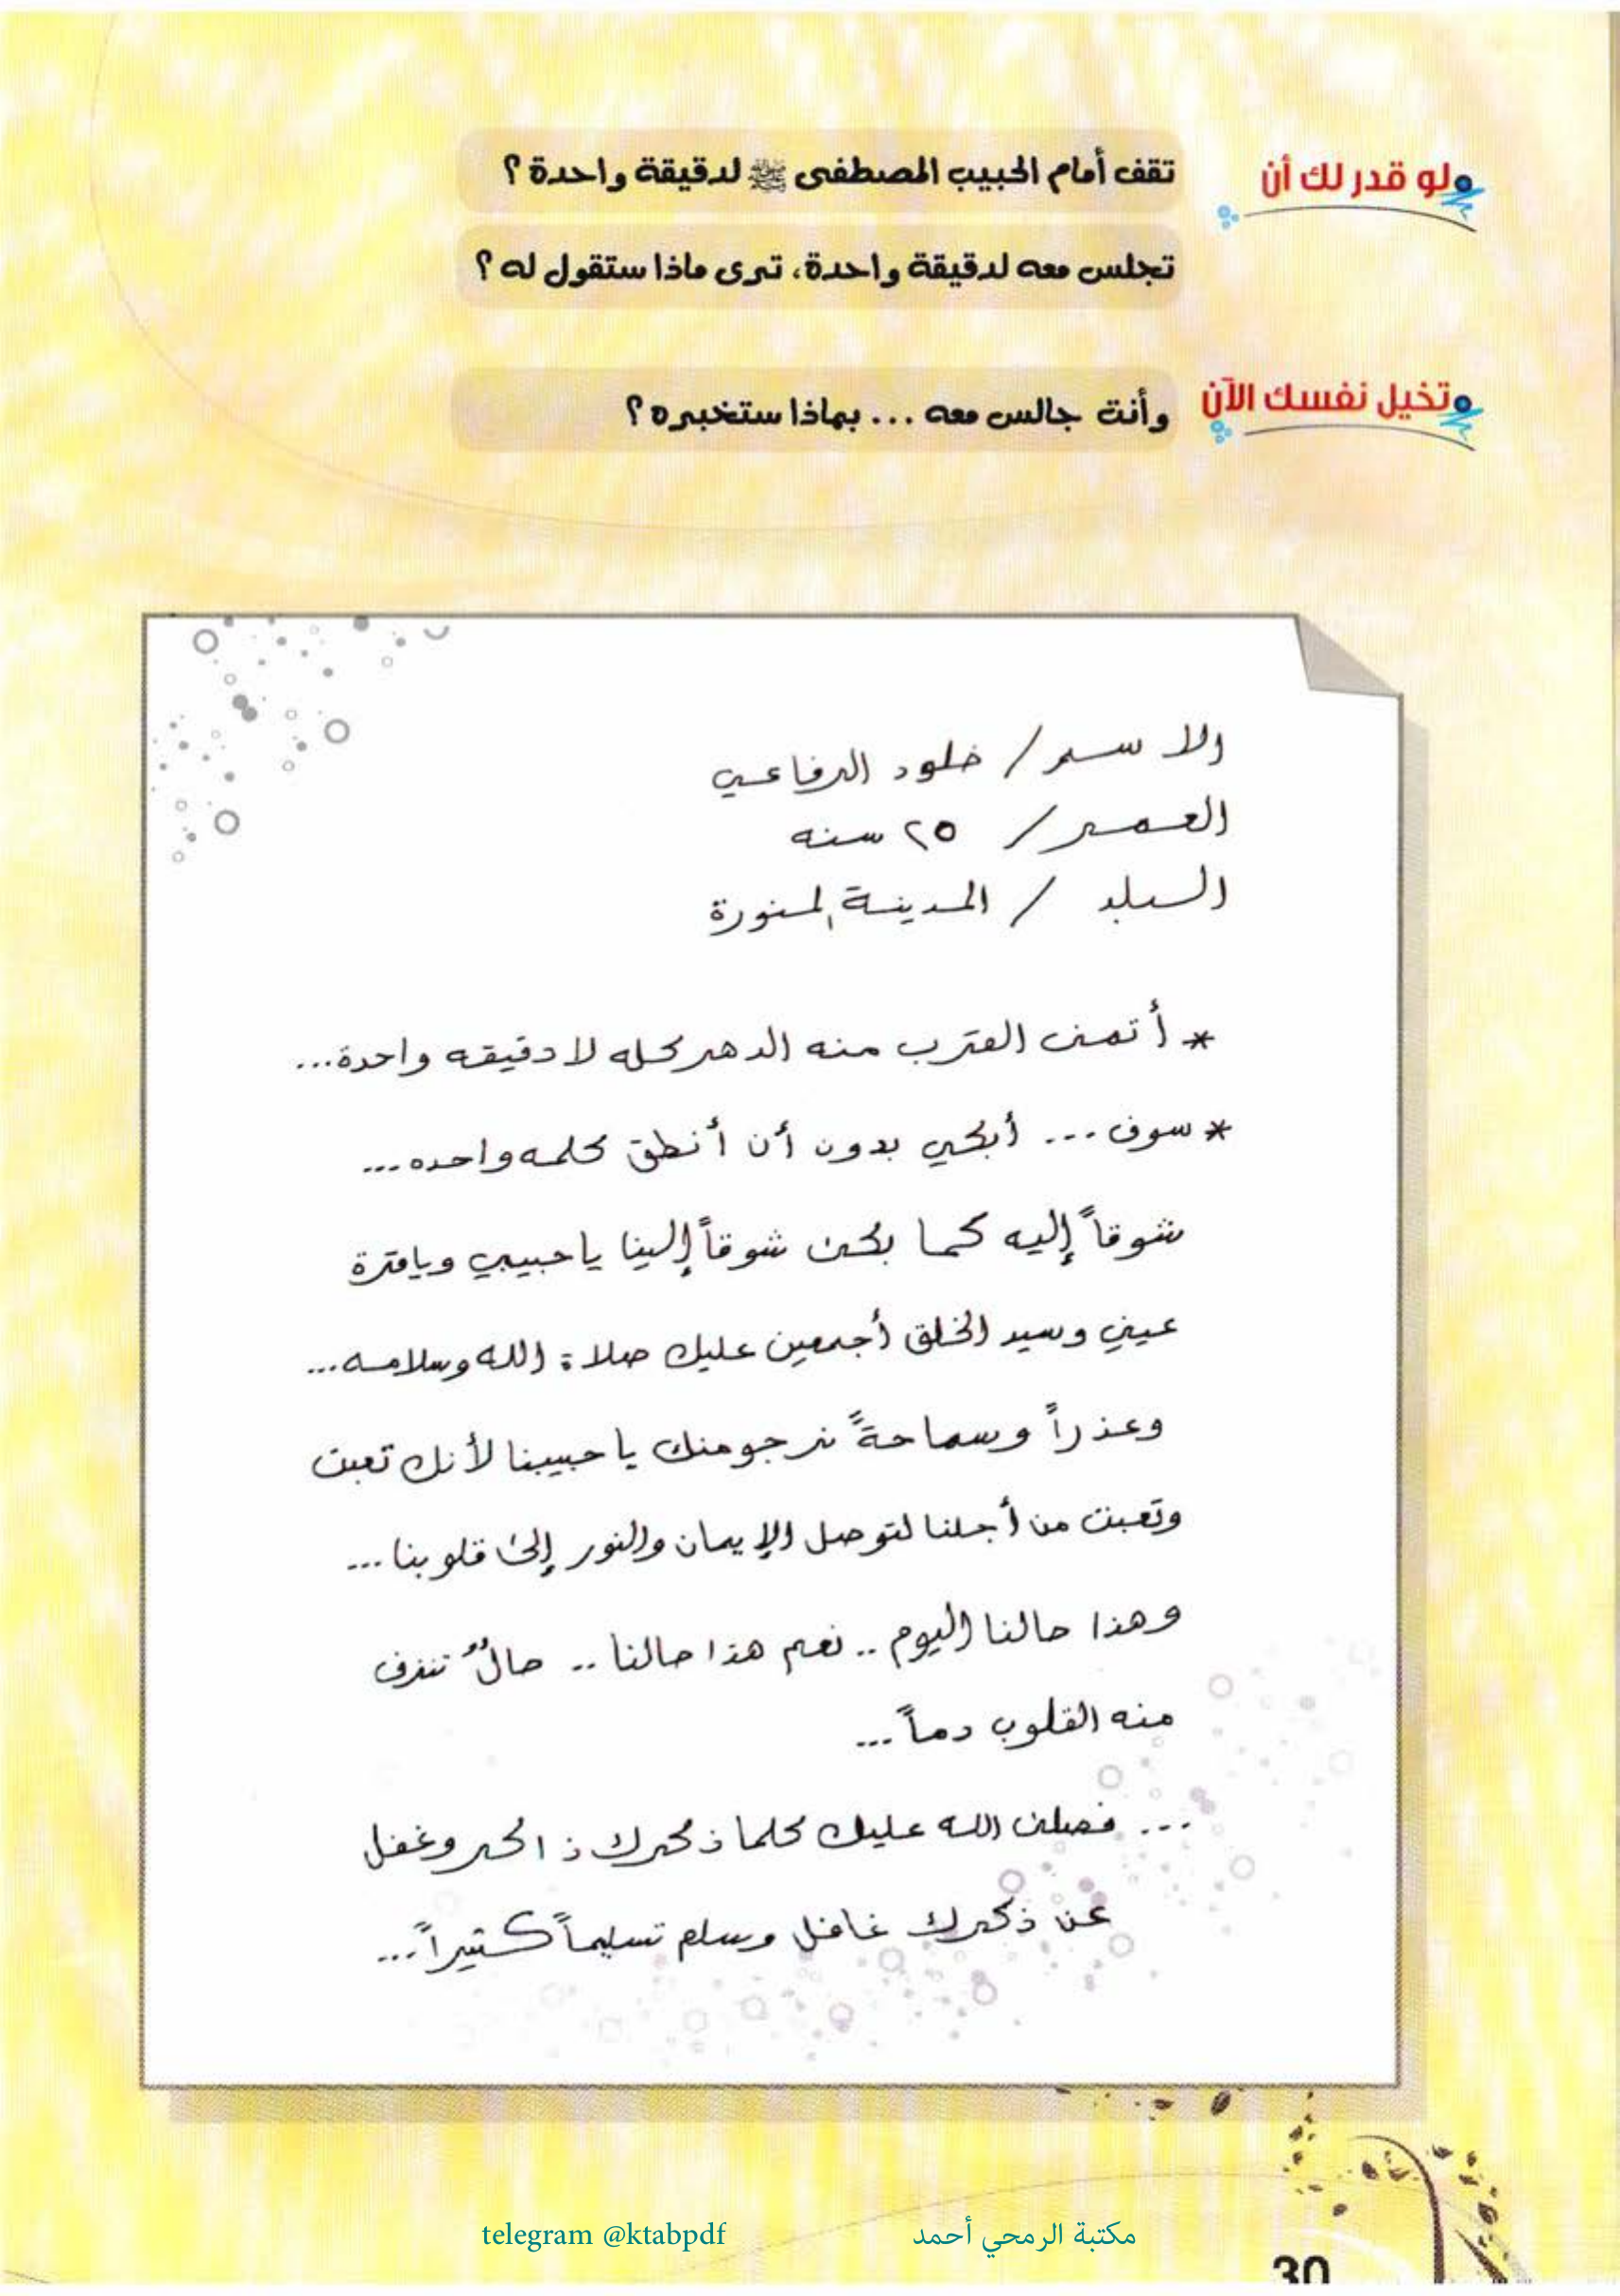 لو قدر لك أن
تقف أمام الحبيب المصطفى ﷺ لدقيقة واحدة؟
تجلس معه لدقيقة واحدة، ترى ماذا ستقول له؟
تخيل نفسك الآن
وأنت جالس معه ... بماذا ستخبره؟
الاسم / خلود الرفاعي
العمر / ٢٥ سنه
البلد / المدينة المنورة
* أتمنى القرب منه الدهر كله لا دقيقه واحدة...
* سوف ... أبكي بدون أن أنطق كلمه واحده ...
شوقاً إليه كما بكى شوقاً إلينا يا حبيبي ويا قرة
عيني وسيد الخلق أجمعين عليك صلاة الله وسلامه...
وعذراً وسماحةً نرجو منك يا حبيبنا لأنك تعبت
وتعبت من أجلنا لتوصل الإيمان والنور إلى قلوبنا ...
وهذا حالنا اليوم .. نعم هذا حالنا .. حالٌ تنزف
منه القلوب دماً ...
... فصلى الله عليك كلما ذكرك ذاكر وغفل
عن ذكرك غافل وسلم تسليماً كثيراً ...
telegram @ktabpdf مكتبة الرمحي أحمد
30